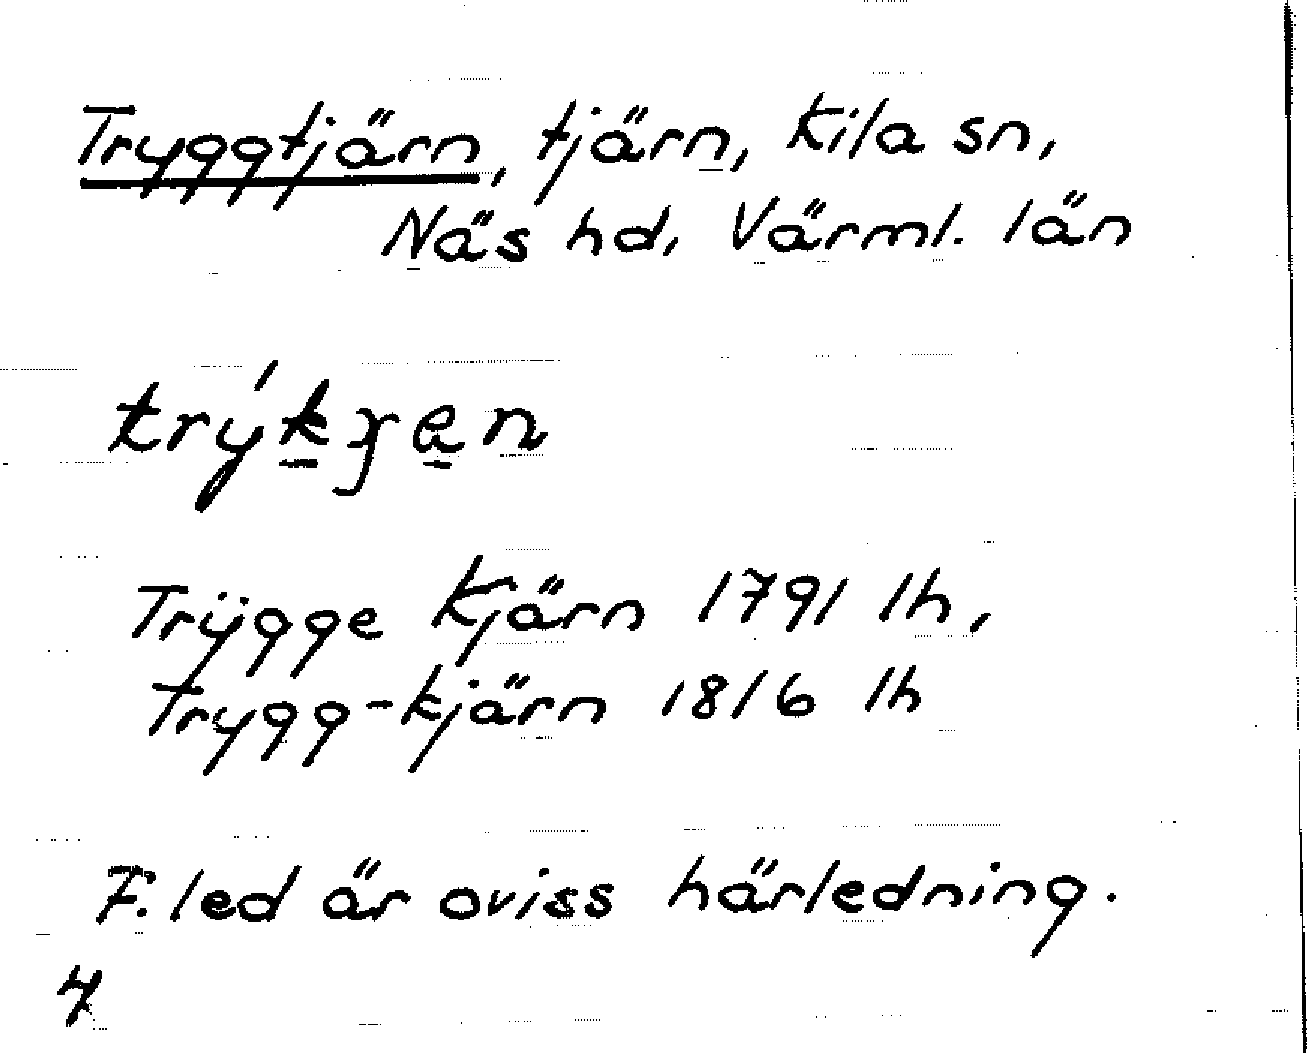 Tryggtjärn, tjärn, Kila sn,
Näs hd, Värml. län
Trygge Kjärn 1791 lh,
Trygg-kjärn 1816 lh
F. led är oviss härledning.